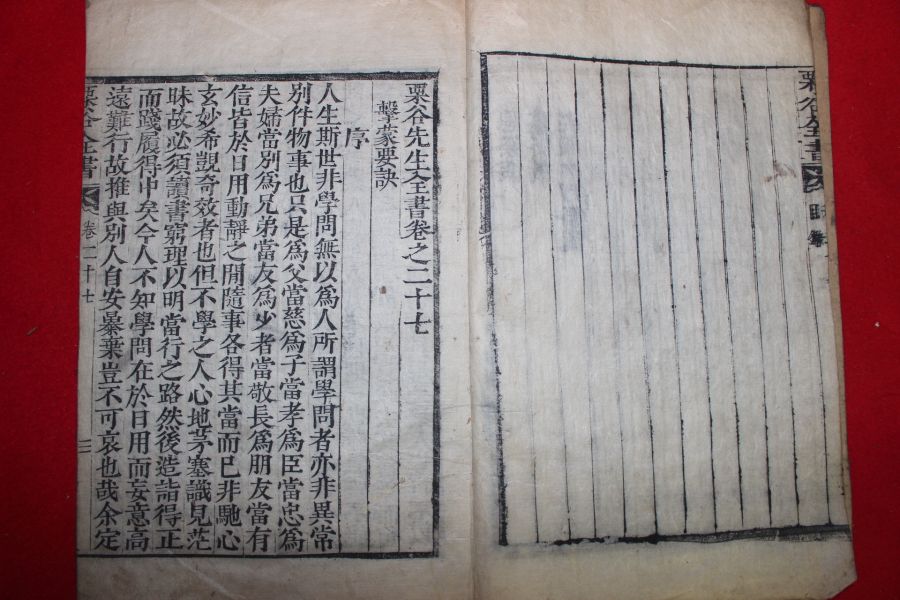 栗谷全書
目錄
栗谷先生全書卷之二十七
擊蒙要訣
序
人生斯世非學問無以爲人所謂學問者亦非異常
別件物事也只是爲父當慈爲子當孝爲臣當忠爲
夫婦當別爲兄弟當友爲少者當敬長爲朋友當有
信皆於日用動靜之閒隨事各得其當而已非馳心
玄妙希覬奇效者也但不學之人心地茅塞識見茫
昧故必須讀書窮理以明當行之路然後造詣得正
而踐履得中矣今人不知學問在於日用而妄意高
遠難行故推與別人自安暴棄豈不可哀也哉余定
栗谷全書 卷二十七